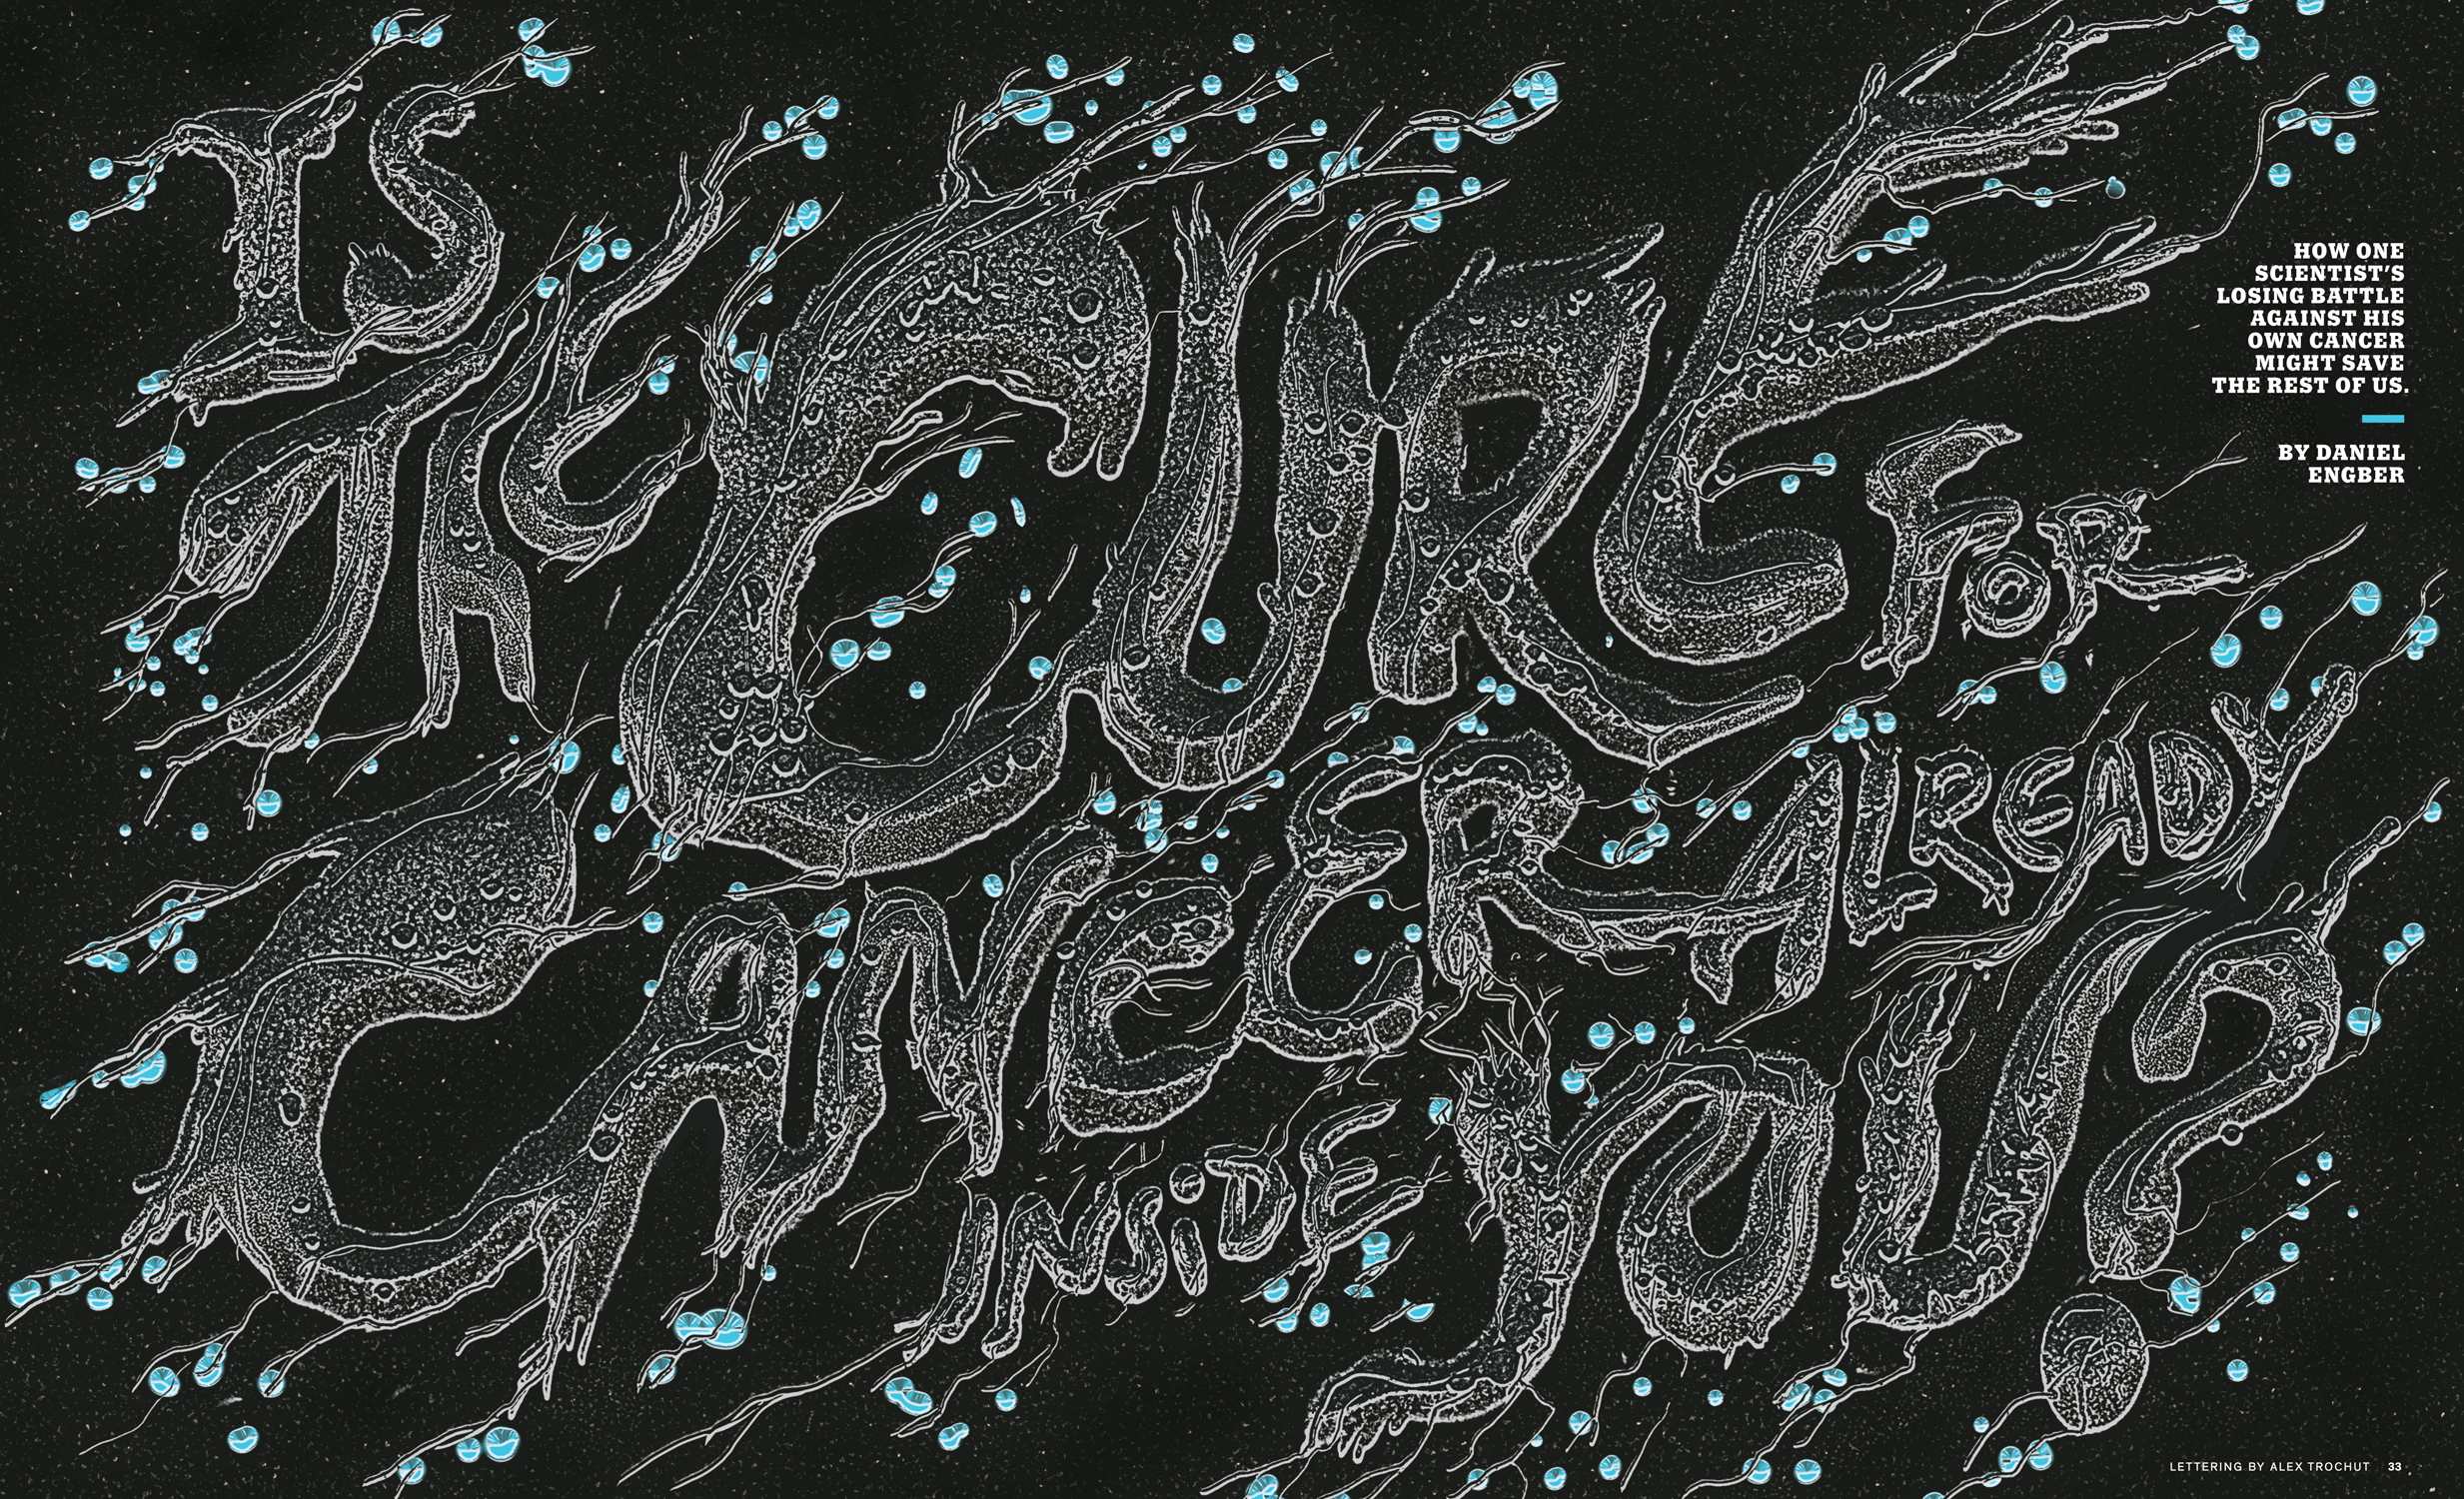 IS
THE CURE FOR
CANCER ALREADY
INSIDE YOU?
HOW ONE
SCIENTIST'S
LOSING BATTLE
AGAINST HIS
OWN CANCER
MIGHT SAVE
THE REST OF US.
BY DANIEL
ENGBER
LETTERING BY ALEX TROCHUT 33